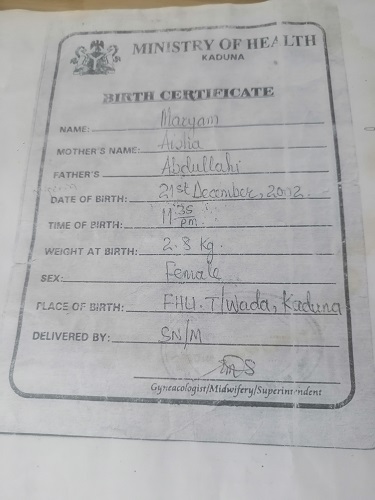 MINISTRY OF HEALTH
KADUNA
BIRTH CERTIFICATE
NAME: Maryam
MOTHER'S NAME: Awlia
FATHER'S Abdullahi
DATE OF BIRTH: 21st December, 2002
TIME OF BIRTH: 11:35 pm
WEIGHT AT BIRTH: 2.8 kg.
SEX: Female
PLACE OF BIRTH: FHU. T/Wada, Kaduna
DELIVERED BY: SN/M
Gyneacologist/Midwifery/Superintendent